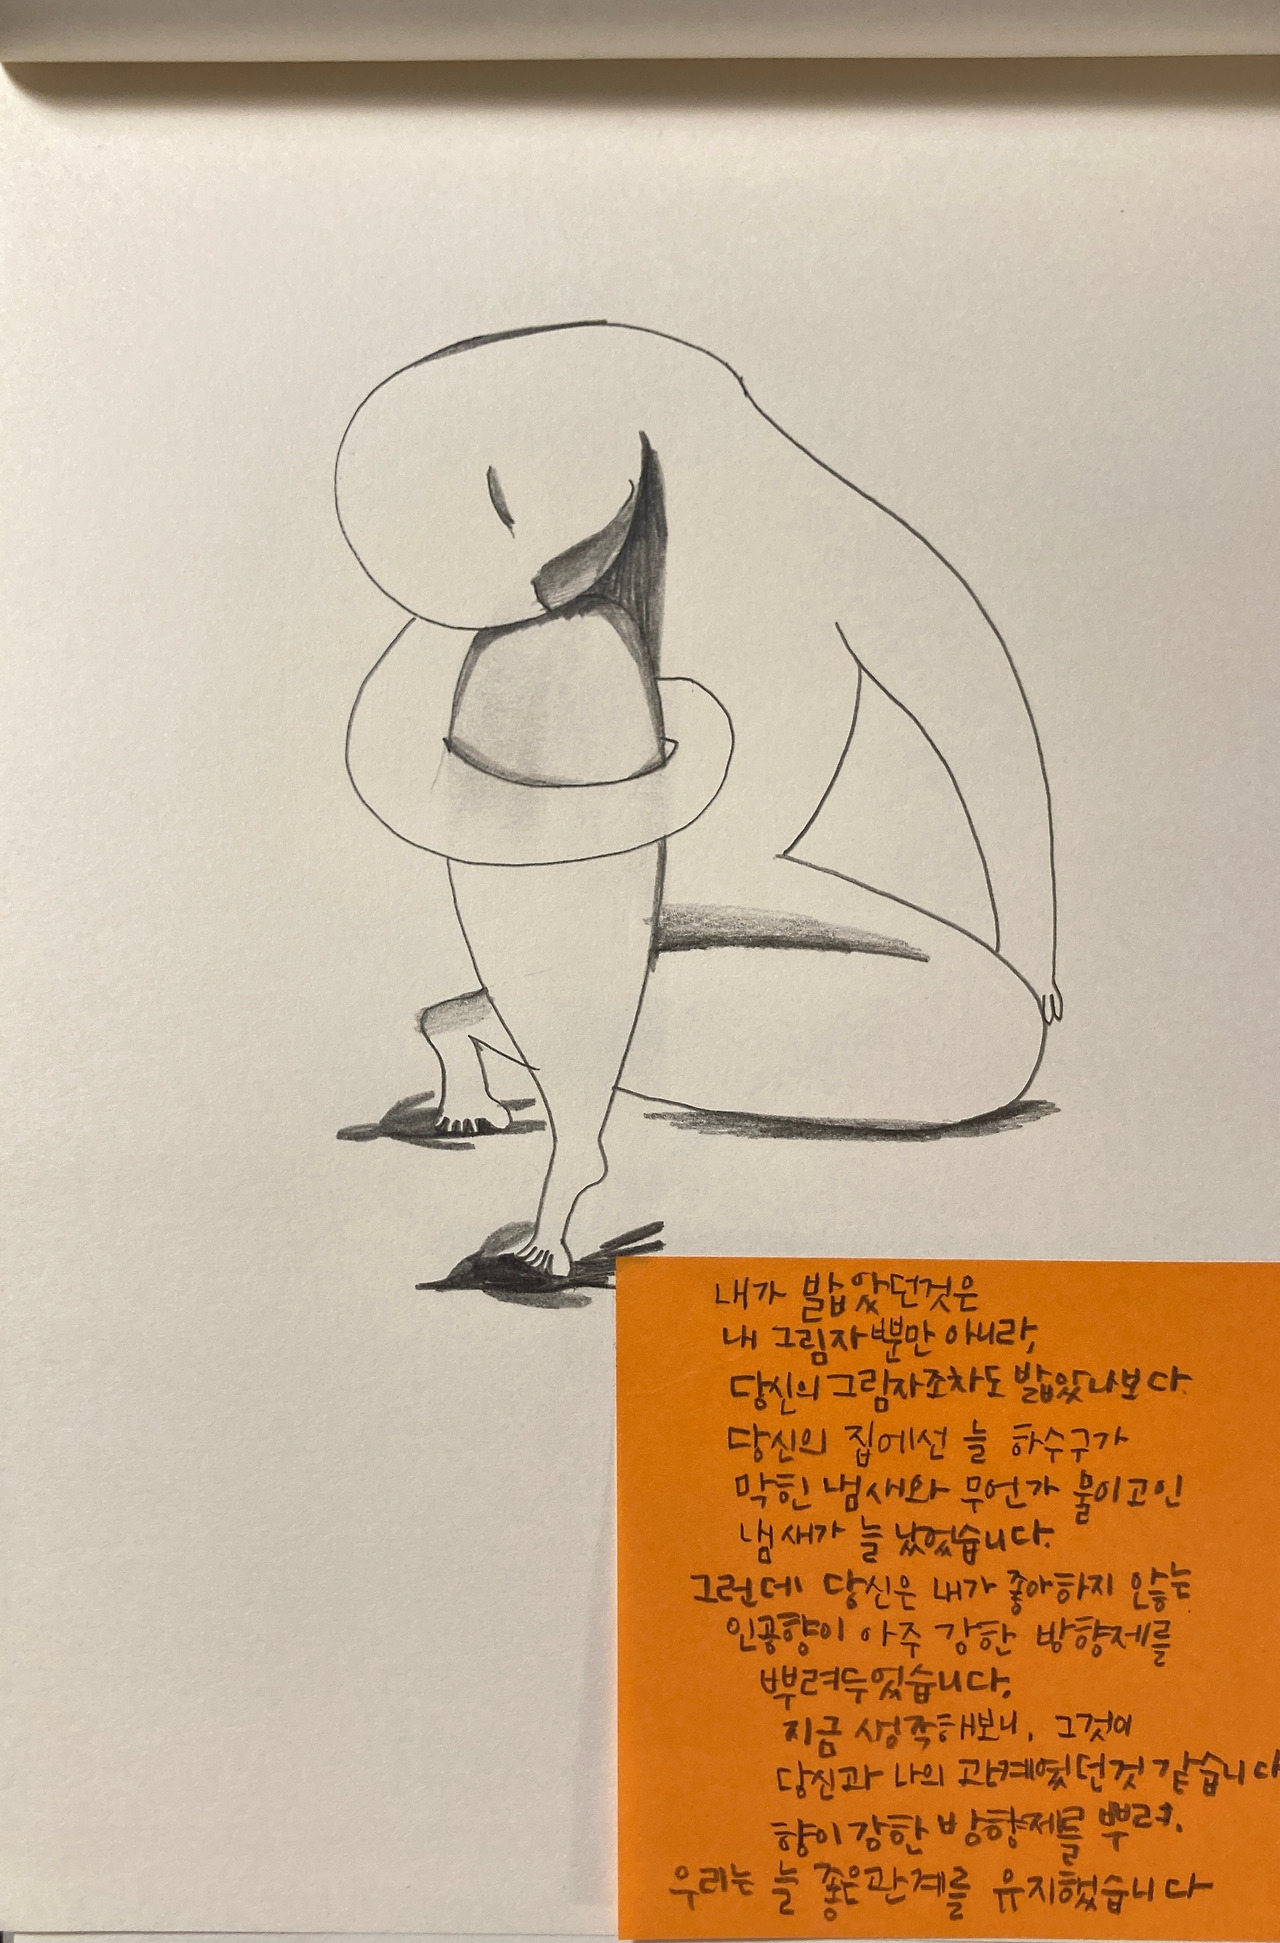 내가 밟았던것은
내 그림자뿐만 아니라,
당신의 그림자조차도 밟았나보다.
당신의 집에선 늘 하수구가
막힌 냄새와 무언가 물이고인
냄새가 늘 났었습니다.
그런데 당신은 내가 좋아하지 않는
인공향이 아주 강한 방향제를
뿌려두었습니다.
지금 생각해보니, 그것이
당신과 나의 관계였던것 같습니다
향이강한 방향제를 뿌려.
우리는 늘 좋은관계를 유지했습니다